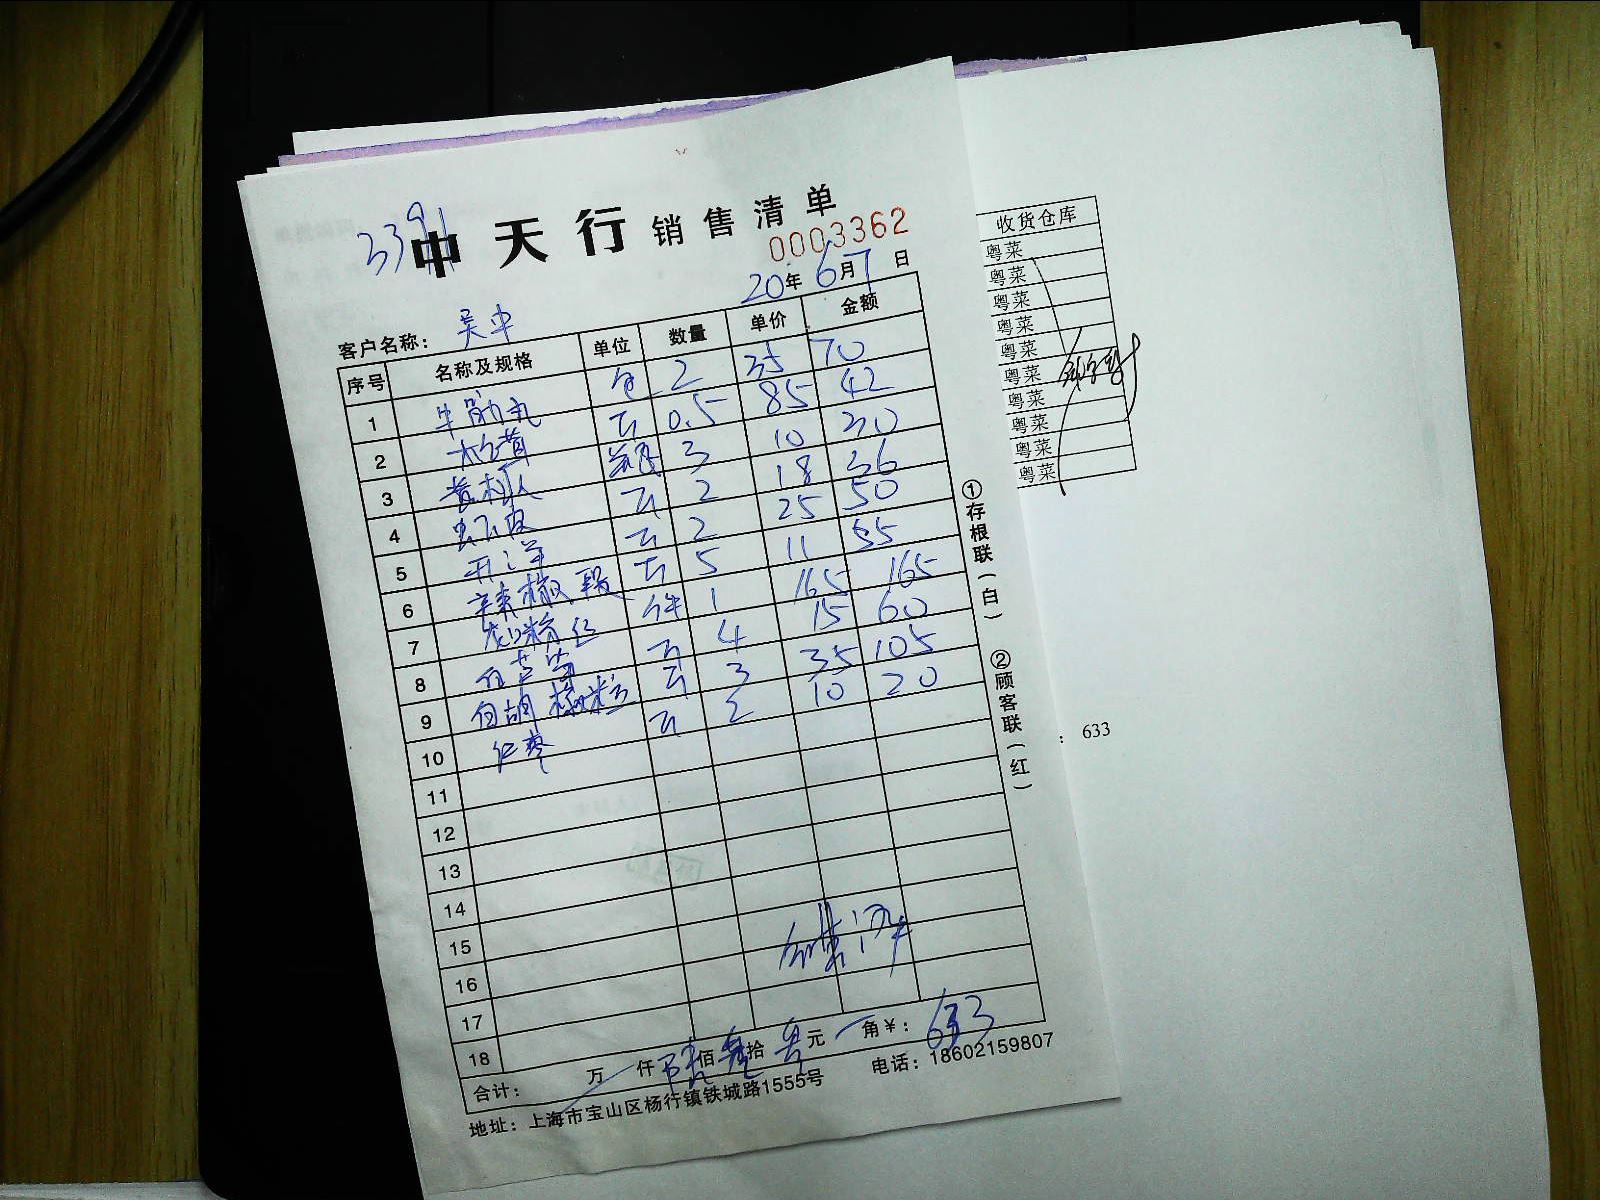 3391
中天行 销售清单
0003362
20年 6月 7日
客户名称： 吴中
序号 名称及规格 单位 数量 单价 金额
1 牛筋丸 包 2 35 70
2 斤 0.5 85 42
3 瓶 3 10 30
4 虾皮 斤 2 18 36
5 开洋 斤 2 25 50
6 辣椒段 斤 5 11 55
7 龙口粉丝 件 1 165 165
8 斤 4 15 60
9 白胡椒粉 斤 3 35 105
10 红枣 斤 2 10 20
11
12
13
14
15
16
17
18
合计： 万 仟 陆佰叁拾叁元 角¥： 633
地址：上海市宝山区杨行镇铁城路1555号 电话：18602159807
①存根联（白） ②顾客联（红）
收货仓库
粤菜
粤菜
粤菜
粤菜
粤菜
粤菜
粤菜
粤菜
粤菜
粤菜
：633